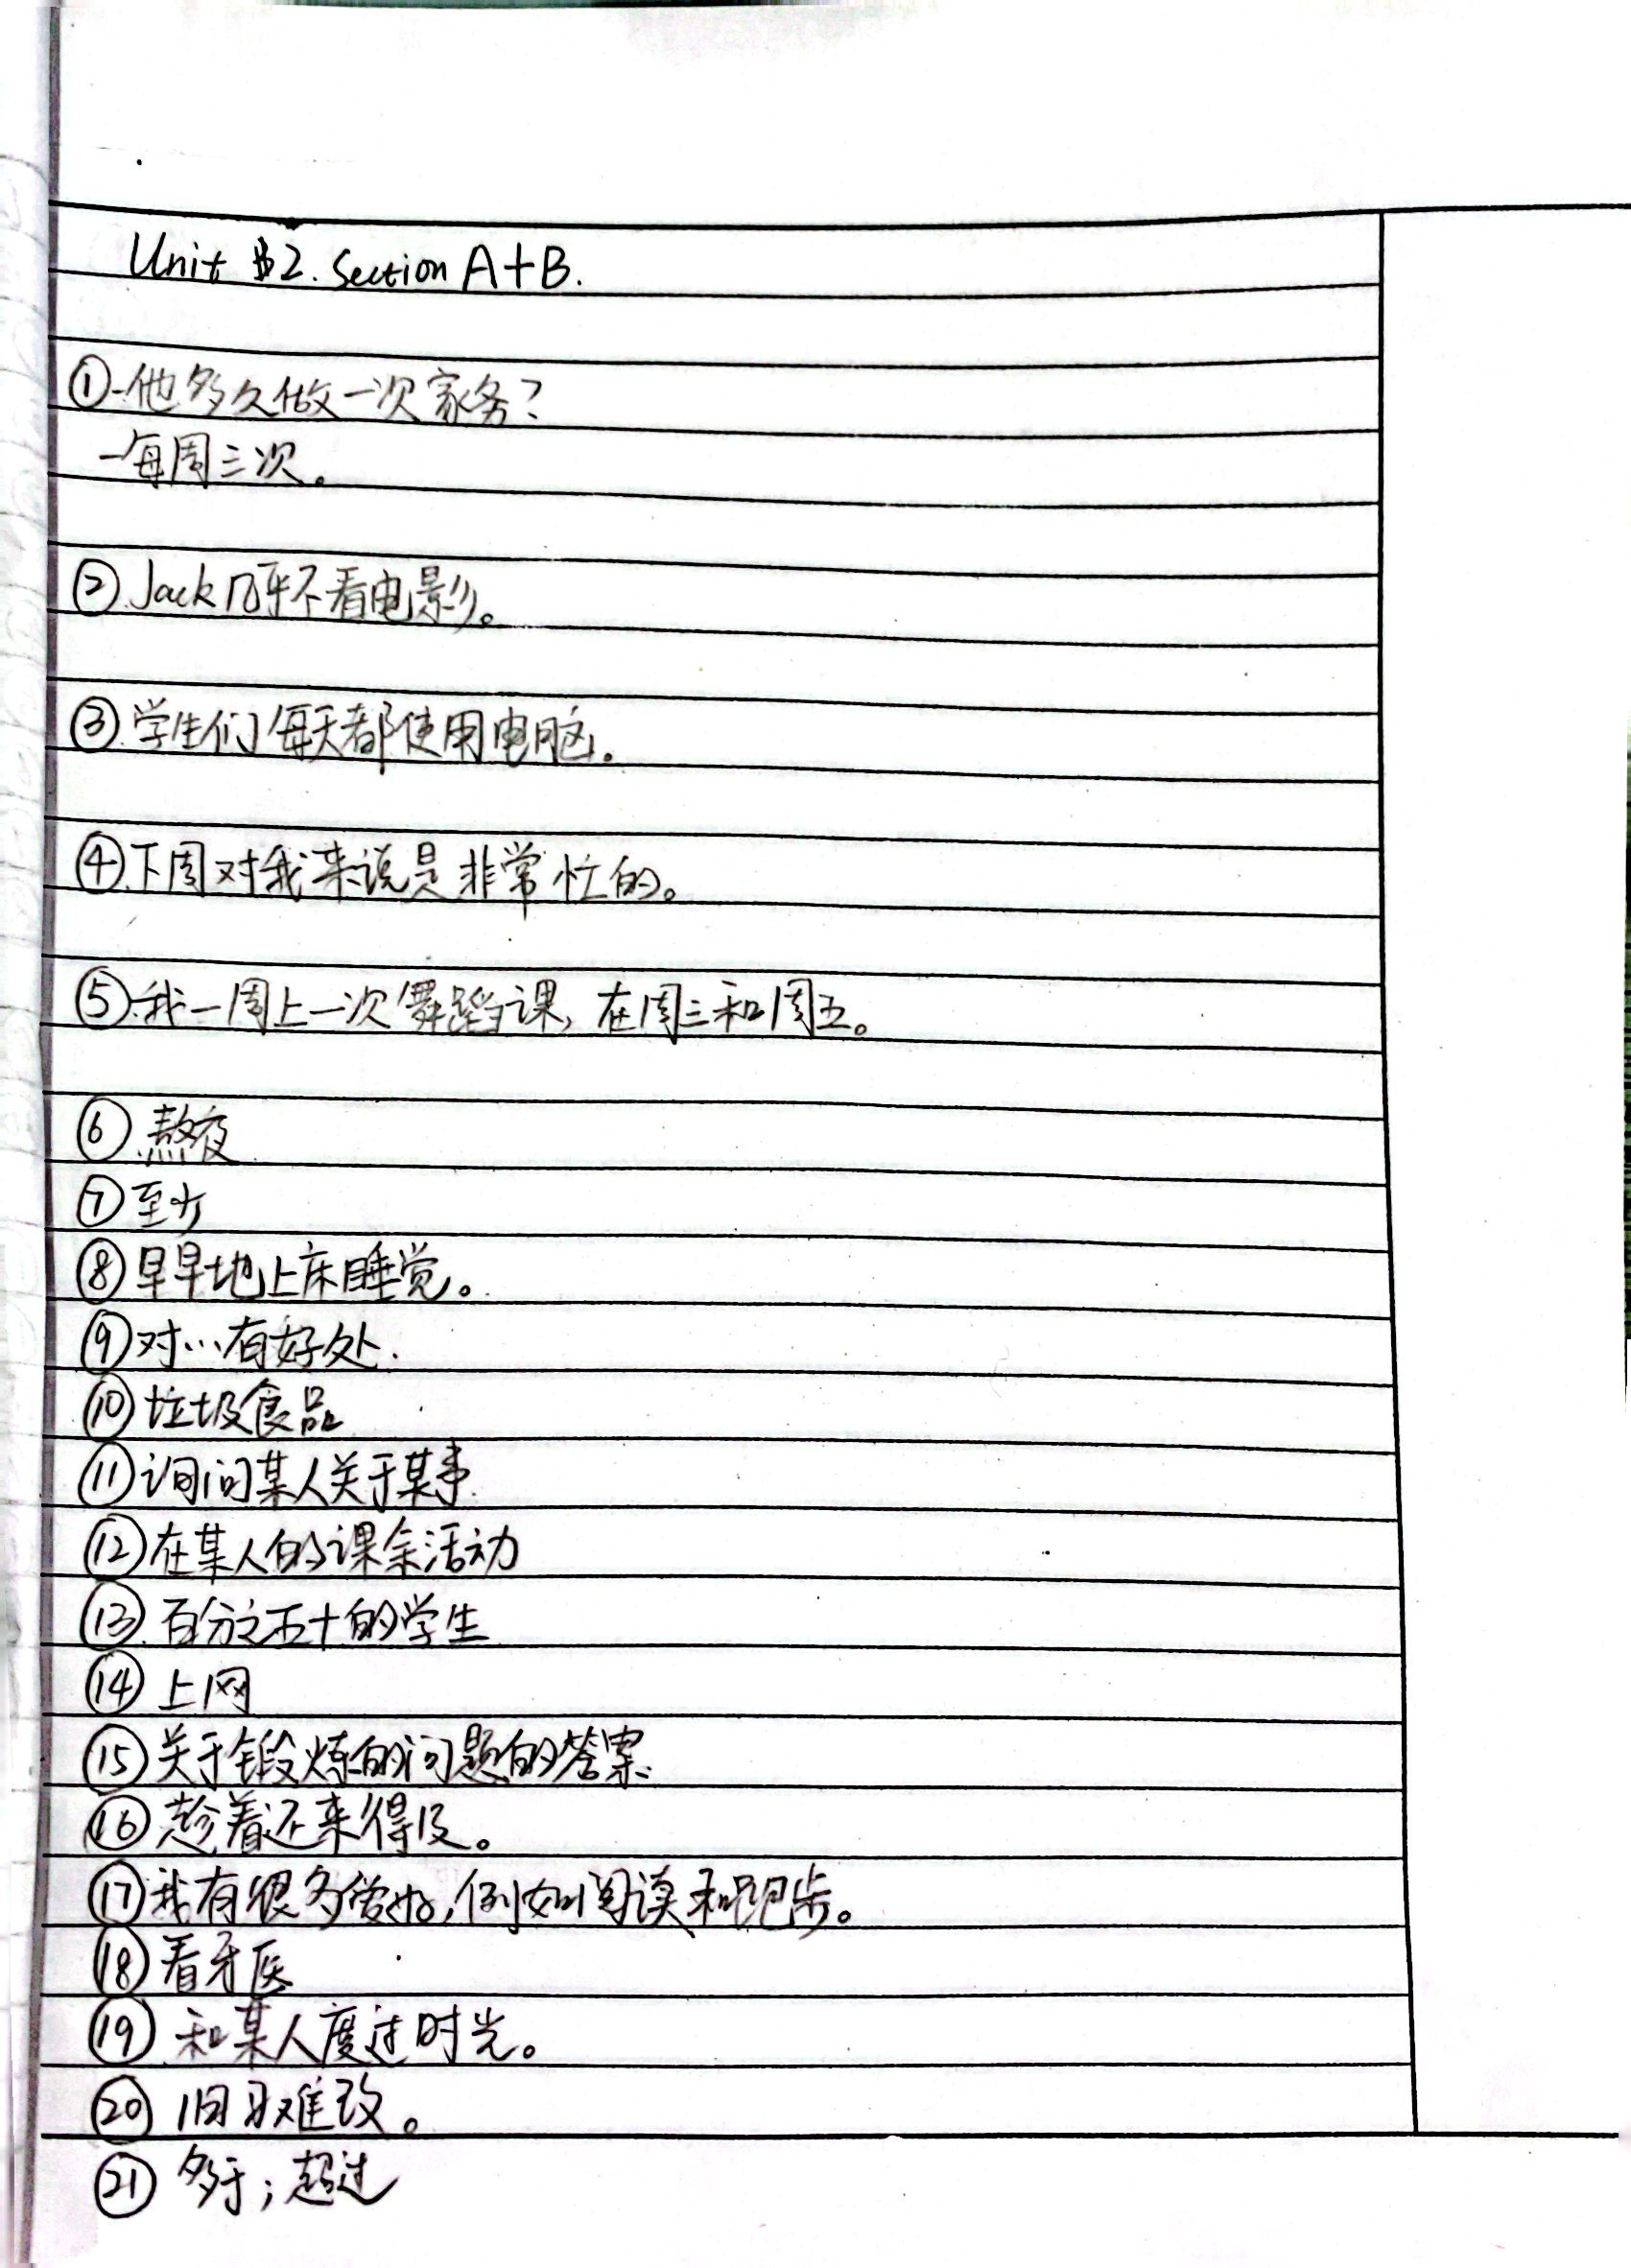 Unit 2. Section A+B.
①-他多久做一次家务?
-每周三次。
②.Jack几乎不看电影。
③.学生们每天都使用电脑。
④.下周对我来说是非常忙的。
⑤.我一周上一次舞蹈课,在周三和周五。
⑥.熬夜
⑦至少
⑧早早地上床睡觉。
⑨对…有好处.
⑩垃圾食品
⑪询问某人关于某事.
⑫在某人的课余活动
⑬.百分之五十的学生
⑭上网
⑮关于锻炼的问题的答案.
⑯趁着还来得及。
⑰我有很多爱好,例如阅读和跑步。
⑱看牙医
⑲和某人度过时光。
⑳旧习难改。
㉑多于;超过